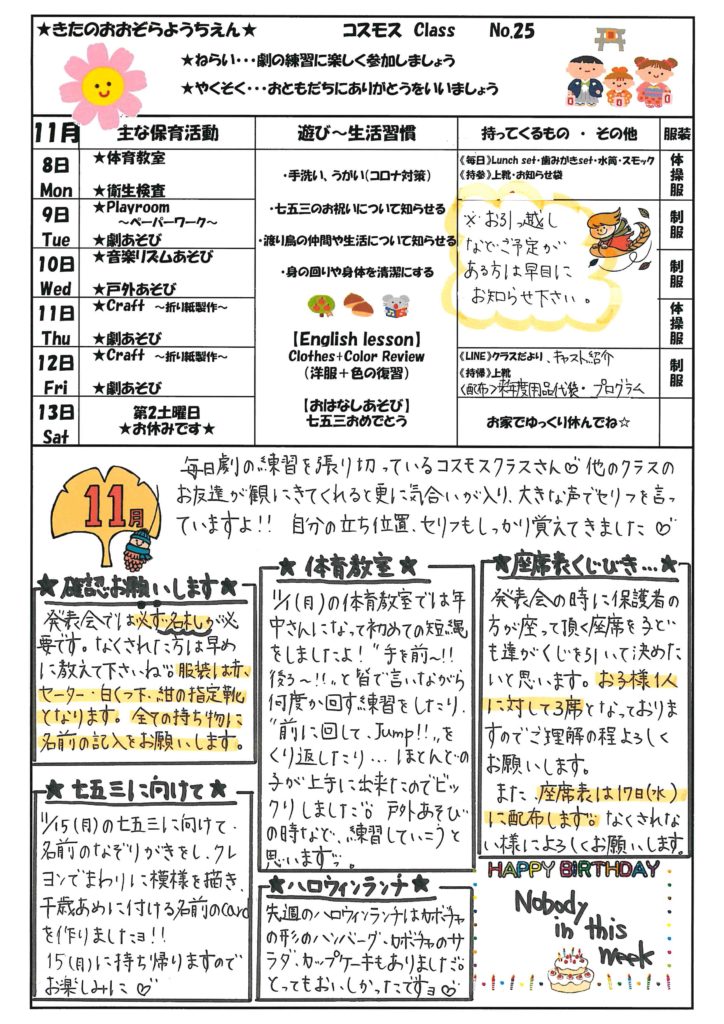 ★きたのおおぞらようちえん★ コスモス Class No.25
★ねらい・・・劇の練習に楽しく参加しましょう
★やくそく・・・おともだちにありがとうをいいましょう
11月 主な保育活動 遊び～生活習慣 持ってくるもの ・ その他 服装
8日 Mon
★体育教室
★衛生検査
9日 Tue
★Playroom
～ペーパーワーク～
★劇あそび
10日 Wed
★音楽リズムあそび
★戸外あそび
11日 Thu
★Craft ～折り紙製作～
★劇あそび
12日 Fri
★Craft ～折り紙製作～
★劇あそび
13日 Sat
第2土曜日
★お休みです★
・手洗い、うがい(コロナ対策)
・七五三のお祝いについて知らせる
・渡り鳥の仲間や生活について知らせる
・身の回りや身体を清潔にする
【English lesson】
Clothes+Color Review
(洋服+色の復習)
【おはなしあそび】
七五三おめでとう
《毎日》Lunch set・歯みがきset・水筒・スモック
《持参》上靴・お知らせ袋
※お引っ越し
などご予定が
ある方は早目に
お知らせ下さい。
《LINE》クラスだより、キャスト紹介
《持帰》上靴
〈配布〉来年度用品代袋・プログラム
お家でゆっくり休んでね☆
体操服
制服
制服
体操服
制服
11月
毎日劇の練習を張り切っているコスモスクラスさん♡他のクラスの
お友達が観にきてくれると更に気合いが入り、大きな声でセリフを言っ
ていますよ!! 自分の立ち位置、セリフもしっかり覚えてきました♡
★確認お願いします★
発表会では必ず名札が必
要です。なくされた方は早め
に教えて下さいね。服装は赤、
セーター・白くつ下、紺の指定靴
となります。全ての持ち物に
名前の記入をお願いします。
★七五三に向けて★
11/15(月)の七五三に向けて、
名前のなぞりがきをし、クレ
ヨンでまわりに模様を描き、
千歳あめに付ける名前のcard
を作りましたヨ!!
15(月)に持ち帰りますので
お楽しみに♡
★体育教室★
11/1(月)の体育教室では年
中さんになって初めての短縄
をしましたよ!"手を前〜!!
後ろ〜!!"と皆で言いながら
何度か回す練習をしたり、
"前に回して、Jump!!"を
くり返したり...ほとんどの
子が上手に出来たのでビッ
クリしました。戸外あそび
の時など、練習していこうと
思いますっ。
★ハロウィンランチ★
先週のハロウィンランチはカボチャ
の形のハンバーグ、カボチャのサ
ラダ、カップケーキもありました。
とってもおいしかったですョ♡
★座席表くじびき...★
発表会の時に保護者の
方が座って頂く座席を子ど
も達がくじを引いて決めた
いと思います。お子様1人
に対して3席となっておりま
すのでご理解の程よろしく
お願いします。
また、座席表は17日(水)
に配布します。なくされな
い様によろしくお願いします。
HAPPY BIRTHDAY
Nobody
in this
week